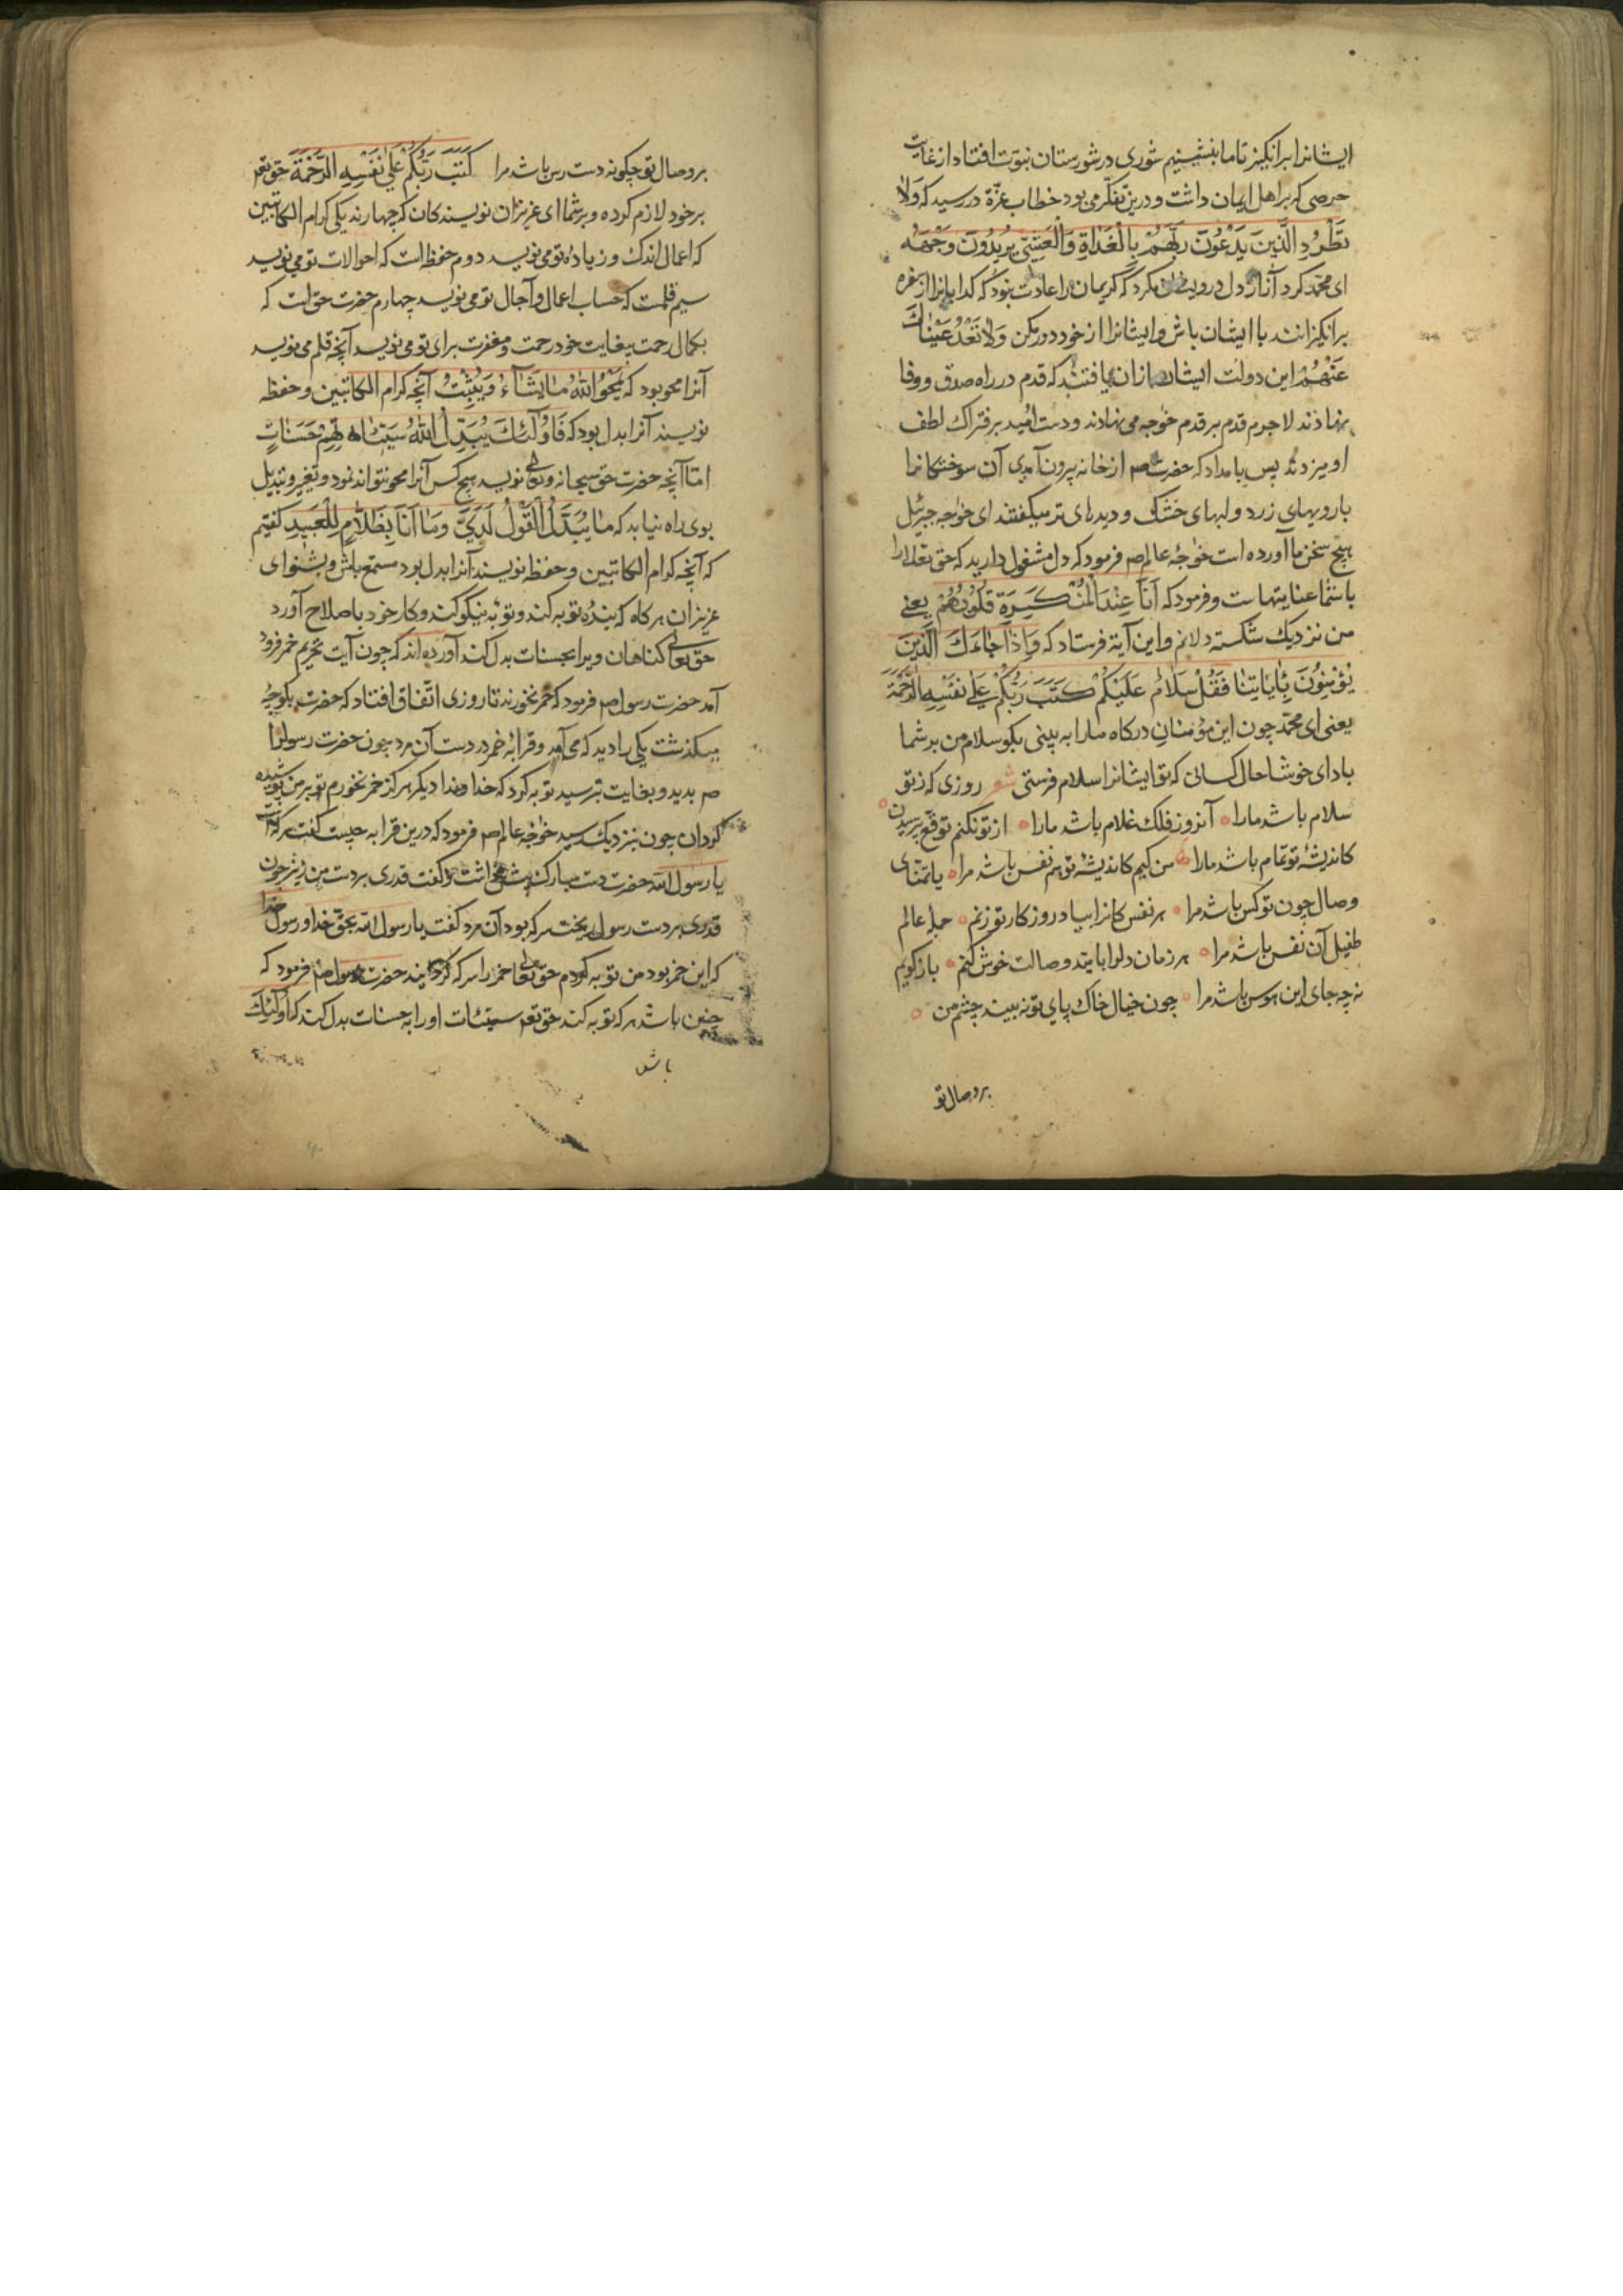 ایشانرا برانکیز تا ما بنشینیم شوری در شورستان نبوّت افتاد از غایت
حرصی که بر اهل ایمان داشت و درین تفکّر می بود خطاب عزّة در رسید که وَلَا
تَطْرُدِ الَّذِینَ یَدْعُونَ رَبَّهُمْ بِالْغَدَاةِ وَالْعَشِیِّ یُرِیدُونَ وَجْهَهُ
ای محمّد کرد آزار دل درویشان مکرد که کریمان را عادت نبود که کدایانرا از سفره
برانکیزانند با ایشان باش و ایشانرا از خود دور مکن وَلَا تَعْدُ عَیْنَاكَ
عَنْهُمْ این دولت ایشان ازان یافتند که قدم در راه صدق و وفا
نهادند لاجرم قدم بر قدم خواجه می نهادند و دست امید بر فتراك لطف
او میزدند پس بامداد که حضرت صم از خانه بیرون آمدی آن سوختکانرا
با رویهای زرد و لبهای خشك و دیدهای تر میکفتند ای خواجه جبرئیل
هیچ سخن ما آورده است خواجۀ عالم صم فرمود که دل مشغول دارید که حق تعالی را
با شما عنایتهاست و فرمود که اَنَا عِنْدَ الْمُنْكَسِرَةِ قُلُوبُهُمْ یعنی
من نزدیك شکسته دلانم و این آیة فرستاد که وَاِذَا جَاءَكَ الَّذِینَ
یُؤْمِنُونَ بِاٰیَاتِنَا فَقُلْ سَلَامٌ عَلَیْكُمْ كَتَبَ رَبُّكُمْ عَلٰی نَفْسِهِ الرَّحْمَةَ
یعنی ای محمّد چون این مؤمنان درکاه ما را به بینی بکو سلام من بر شما
باد ای خوشا حال کسانی که تو ایشانرا سلام فرستی شعر روزی که ز تو
سلام باشد ما را آنروز فلك غلام باشد ما را از تو نکنم توقّع پرسیدن
کاندیشۀ تو تمام باشد ما را من کیم کاندیشۀ تو هم نفس باشد مرا یا تمنّای
وصال چون تو کس باشد مرا هر نفس کانرا بیاد روزکار تو زنم جملۀ عالم
طفیل آن نفس باشد مرا هر زمان دلرا بامید وصالت خوش کنم باز کویم
نه چه جای این هوس باشد مرا چون خیال خاك پای تو نه بیند چشم من
بر وصال تو
بر وصال تو چکونه دست رس باشد مرا كَتَبَ رَبُّكُمْ عَلٰی نَفْسِهِ الرَّحْمَةَ حق تعم
بر خود لازم کرده و بر شما ای عزیزان نویسندکان که چهارند یکی کرام الکاتبین
که اعمال اندك و زیادۀ تو می نویسد دوم حفظه است که احوالات تو می نویسد
سیم قلمت که حساب اعمال و آجال تو می نویسد چهارم حضرت حق است که
بکمال رحمت بیغایت خود رحمت و مغفرت برای تو می نویسد آنچه قلم می نویسد
آنرا محو بود که یَمْحُو اللّٰهُ مَا یَشَاءُ وَیُثْبِتُ آنچه کرام الکاتبین و حفظه
نویسند آنرا بدل بود که فَاُولٰئِكَ یُبَدِّلُ اللّٰهُ سَیِّئَاتِهِمْ حَسَنَاتٍ
امّا آنچه حضرت حق سبحانه وتعالی نویسد هیچ کس آنرا محو نتواند نمود و تغییر و تبدیل
بوی راه نیابد که مَا یُبَدَّلُ الْقَوْلُ لَدَیَّ وَمَا اَنَا بِظَلَّامٍ لِلْعَبِیدِ کفتیم
که آنچه کرام الکاتبین و حفظه نویسند آنرا بدل بود مستمع باش و بشنو ای
عزیزان هر کاه که بندۀ توبه کند و توبه نیکو کند و کار خود باصلاح آورد
حق تعالی کناهان ویرا بحسنات بدل کند آورده اند که چون آیت تحریم خمر فرود
آمد حضرت رسول صم فرمود که خمر نخورند تا روزی اتّفاق افتاد که حضرت بکوچۀ
میکذشت یکی را دید که می آمد و قرابۀ خمر در دست آن مرد چون حضرت رسولرا
صم بدید و بغایت بترسید توبه کرد که خداوندا دیکر هرکز خمر نخورم تو بر من پوشیده
کردان چون بنزدیك رسید خواجه عالم صم فرمود که درین قرابه چیست کفت سرکه است
یا رسول الله حضرت دست مبارك پیش داشت و کفت قدری بر دست من ریز چون
قدری بر دست رسول ریخت سرکه بود آن مرد کفت یا رسول الله بحقّ خدا و رسول خدا
که این خمر بود من توبه کردم حق تعالی خمر را سرکه کردانید حضرت رسول صم فرمود که
چنین باشد هر که توبه کند حق تعم سیّئات او را به حسنات بدل کند که اُولٰئِكَ
باش